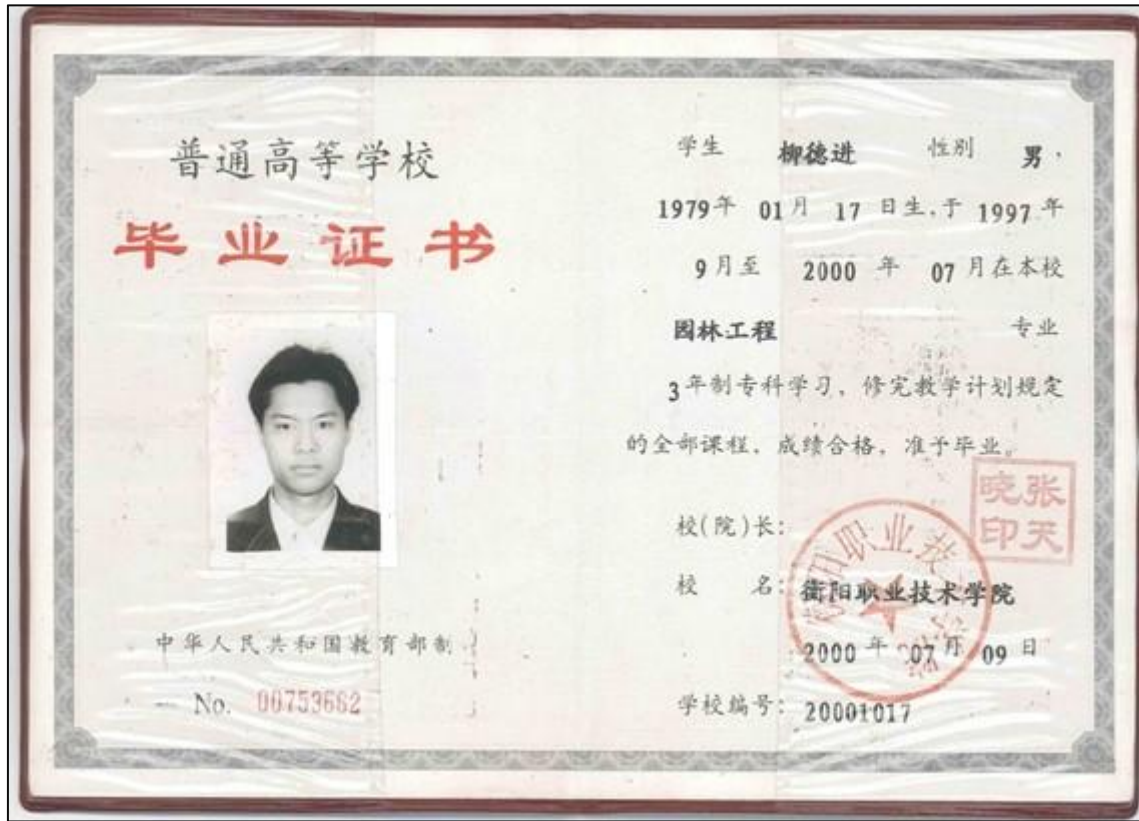 普通高等学校
毕业证书
中华人民共和国教育部制
No. 00753662
学生 柳德进 性别 男
1979年 01月 17日生,于 1997年
9月至 2000年 07月在本校
园林工程 专业
3年制专科学习,修完教学计划规定
的全部课程,成绩合格,准予毕业。
校(院)长:
张天
晓印
校 名: 衡阳职业技术学院
2000年 07月 09日
学校编号: 20001017